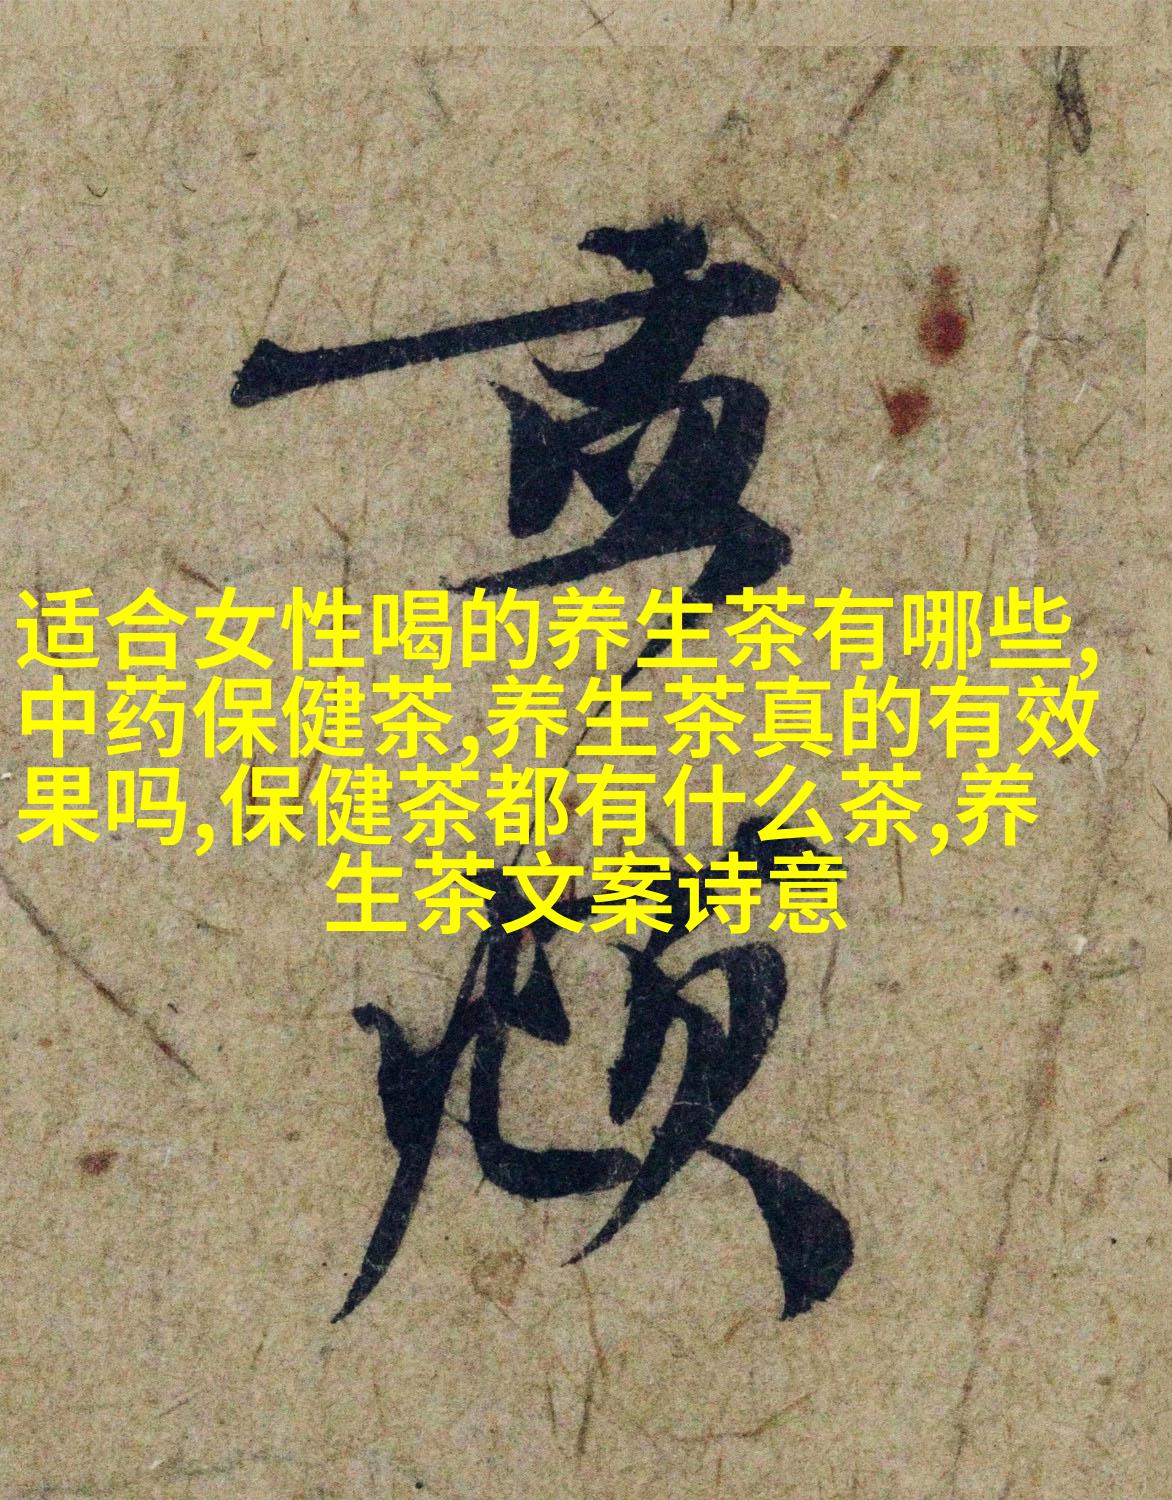 适合女性喝的养生茶有哪些,
中药保健茶,养生茶真的有效
果吗,保健茶都有什么茶,养
生茶文案诗意